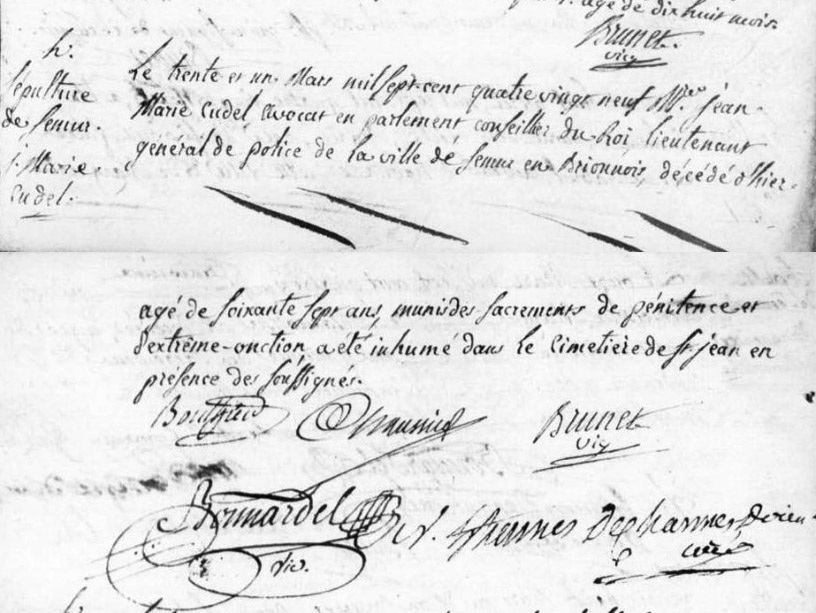 agé de dix huit mois.
Brunet
vic
h.
Sépulture
de Semur.
j. Marie
Cudel.
Le trente et un Mars mil sept cent quatre vingt neuf Mre jean
Marie Cudel avocat en parlement conseiller du Roi, lieutenant
général de police de la ville de Semur en Brionnois, décédé d'hier
agé de soixante sept ans, munis des sacrements de pénitence et
d'extrême-onction, a été inhumé dans le cimetiere de St jean en
présence des soussignés.
Brunet
vic
Bonnardel
vic.